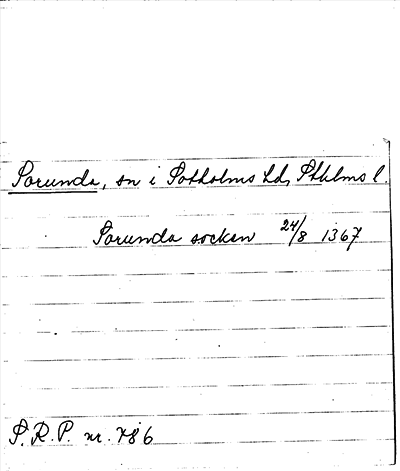 Sorunda, sn i Sotholms hd, Sthlms l.
Sorunda socken 24/8 1367
S.R.P. nr. 786